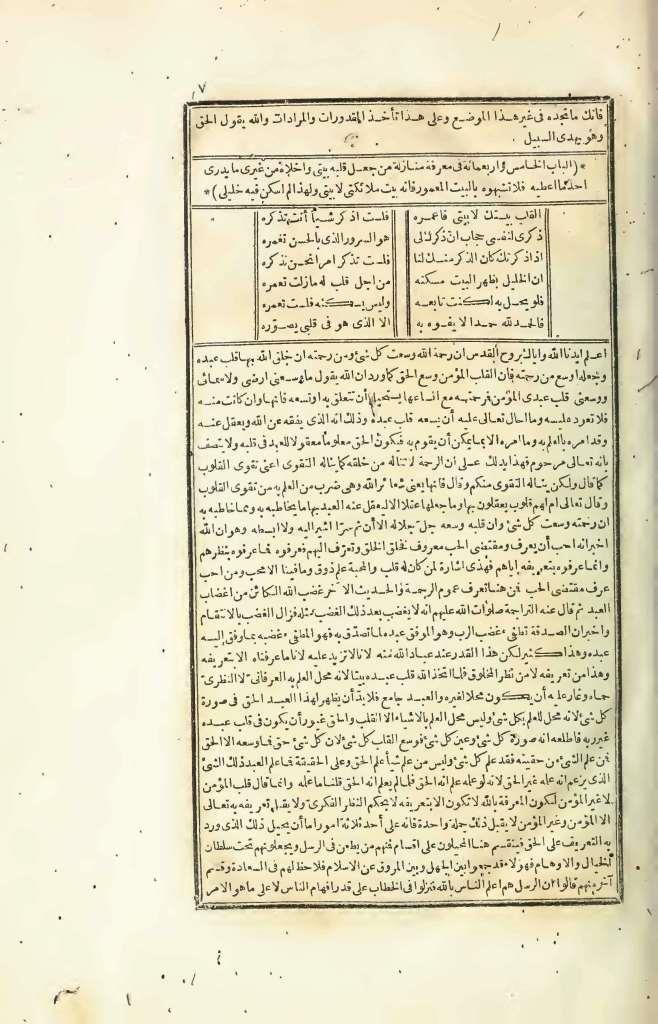 ٧
فانك ما تجده فى غير هذا الموضع وعلى هذا تأخذ المقدورات والمرادات والله يقول الحق
وهو يهدى السبيل
* (الباب الخامس واربعمائة فى معرفة منازلة من جعل قلبه بيتى واخلاه من غيرى ما يدرى
احد ما اعطيه فلا تشبهوه بالبيت المعمور فانه بيت ملائكتى لا بيتى ولهذا لم اسكن فيه خليلى) *
القلب بيتك لا بيتى فاعمره فلست اذكر شيأ أنت تذكره
ذكرى لنفسى حجاب ان ذكرك لى هو السرور الذى بالحسن تغمره
اذ اذكرتك كان الذكر منك لنا فلست تذكر امر انحن نذكره
ان الخليل بظهر البيت مسكنه من اجل قلب له مازلت تعمره
فلو يحل به لكنت تابعه وليس يسكنه فلست تعمره
فالحمد لله حمدا لا يفوه به الا الذى هو فى قلبى يصوره
اعلم ايدنا الله واياك بروح القدس ان رحمة الله وسعت كل شئ ومن رحمته ان خلق الله بها قلب عبده
وجعله اوسع من رحمته فان القلب المؤمن وسع الحق كما ورد ان الله يقول ما وسعنى ارضى ولا سمائى
ووسعنى قلب عبدى المؤمن فرحمته مع اتساعها يستحيل أن تتعلق به او تسعه فانها وان كانت منه
فلا تعود عليه وما احال تعالى عليه أن يسعه قلب عبده وذلك انه الذى يفقه عن الله ويعقل عنه
وقد امره بالعلم به وما امره الا بما يمكن أن يقوم به فيكون الحق معلوما معقولا للعبد فى قلبه ولا يتصف
بانه تعالى مرحوم فهذا يدلك على ان الرحمة لا تناله من خلقه كما يناله التقوى اعنى تقوى القلوب
كما قال ولكن يناله التقوى منكم وقال فانها يعنى شعائر الله وهى ضرب من العلم به من تقوى القلوب
وقال تعالى ام لهم قلوب يعقلون بها وما جعلها عقلا الا ليعقل عنه العبد بها ما يخاطبه به ومما خاطبه به
ان رحمته وسعت كل شئ وان قلبه وسعه جل جلاله الا أن ثم سرّا اشير اليه ولا ابسطه وهو ان الله
اخبر انه احب أن يعرف ومقتضى الحب معروف فخلق الخلق وتعرّف اليهم فعرفوه فما عرفوه بنظرهم
وانما عرفوه بتعريفه اياهم فهذى اشارة لمن كان له قلب والمحبة علم ذوق وما فينا الا محب ومن احب
عرف مقتضى الحب فن هنا تعرف عموم الرحمة والحديث الآخر غضب الله الكائن من اغضاب
العبد ثم قال عنه التراجمة صلوات الله عليهم انه لا يغضب بعد ذلك الغضب مثله فزال الغضب بالانتقام
واخبر ان الصدقة تطفئ غضب الرب وهو الموفق عبده لما تصدّق به فهو المطفئ غضبه بما رفق اليه
عبده وهذا كثير لكن هذا القدر عند عباد الله منه لانالا نزيد عليه لانا ما عرفناه الا بتعريفه
وهذا من تعريفه لا من نظر المخلوق فلما اتخذ الله قلب عبده بيتا لانه محل العلم به العرفانى لا النظرى
حماه وغار عليه أن يكون محلا لغيره والعبد جامع فلابد أن يظهر لهذا العبد الحق فى صورة
كل شئ لانه محل للعلم بكل شئ وليس محل العلم بالاشياء الا القلب والحق غيور أن يكون فى قلب عبده
غير ربه فاطلعه انه صورة كل شئ وعين كل شئ فوسع القلب كل شئ لان كل شئ حق فما وسعه الا الحق
فمن علم الشئ من حقيقته فقد علم الحق وليس من علم شيأ علم الحق وعلى الحقيقة فما علم العبد ذلك الشئ
الذى يزعم انه علمه غير الحق لانه لو علمه علم انه الحق فلما لم يعلم انه الحق قلنا ما علمه وانما قال قلب المؤمن
لا غير المؤمن لكون المعرفة بالله لا تكون الا بتعريفه لا بحكم النظر الفكرى ولا يقبل تعريفه به تعالى
الا المؤمن وغير المؤمن لا يقبل ذلك جملة واحدة فانه على أحد ثلاثة امور اما أن يحيل ذلك الذى ورد
به التعريف على الحق فينقسم هنا المحيلون على اقسام فمنهم من يطعن فى الرسل ويجعلونهم تحت سلطان
الخيال والاوهام فهؤلاء قد جمعوا بين الجهل وبين المروق عن الاسلام فلا حظ لهم فى السعادة وقسم
آخر منهم قالوا ان الرسل هم اعلم الناس بالله فتنزلوا فى الخطاب على قدر افهام الناس لا على ما هو الامر